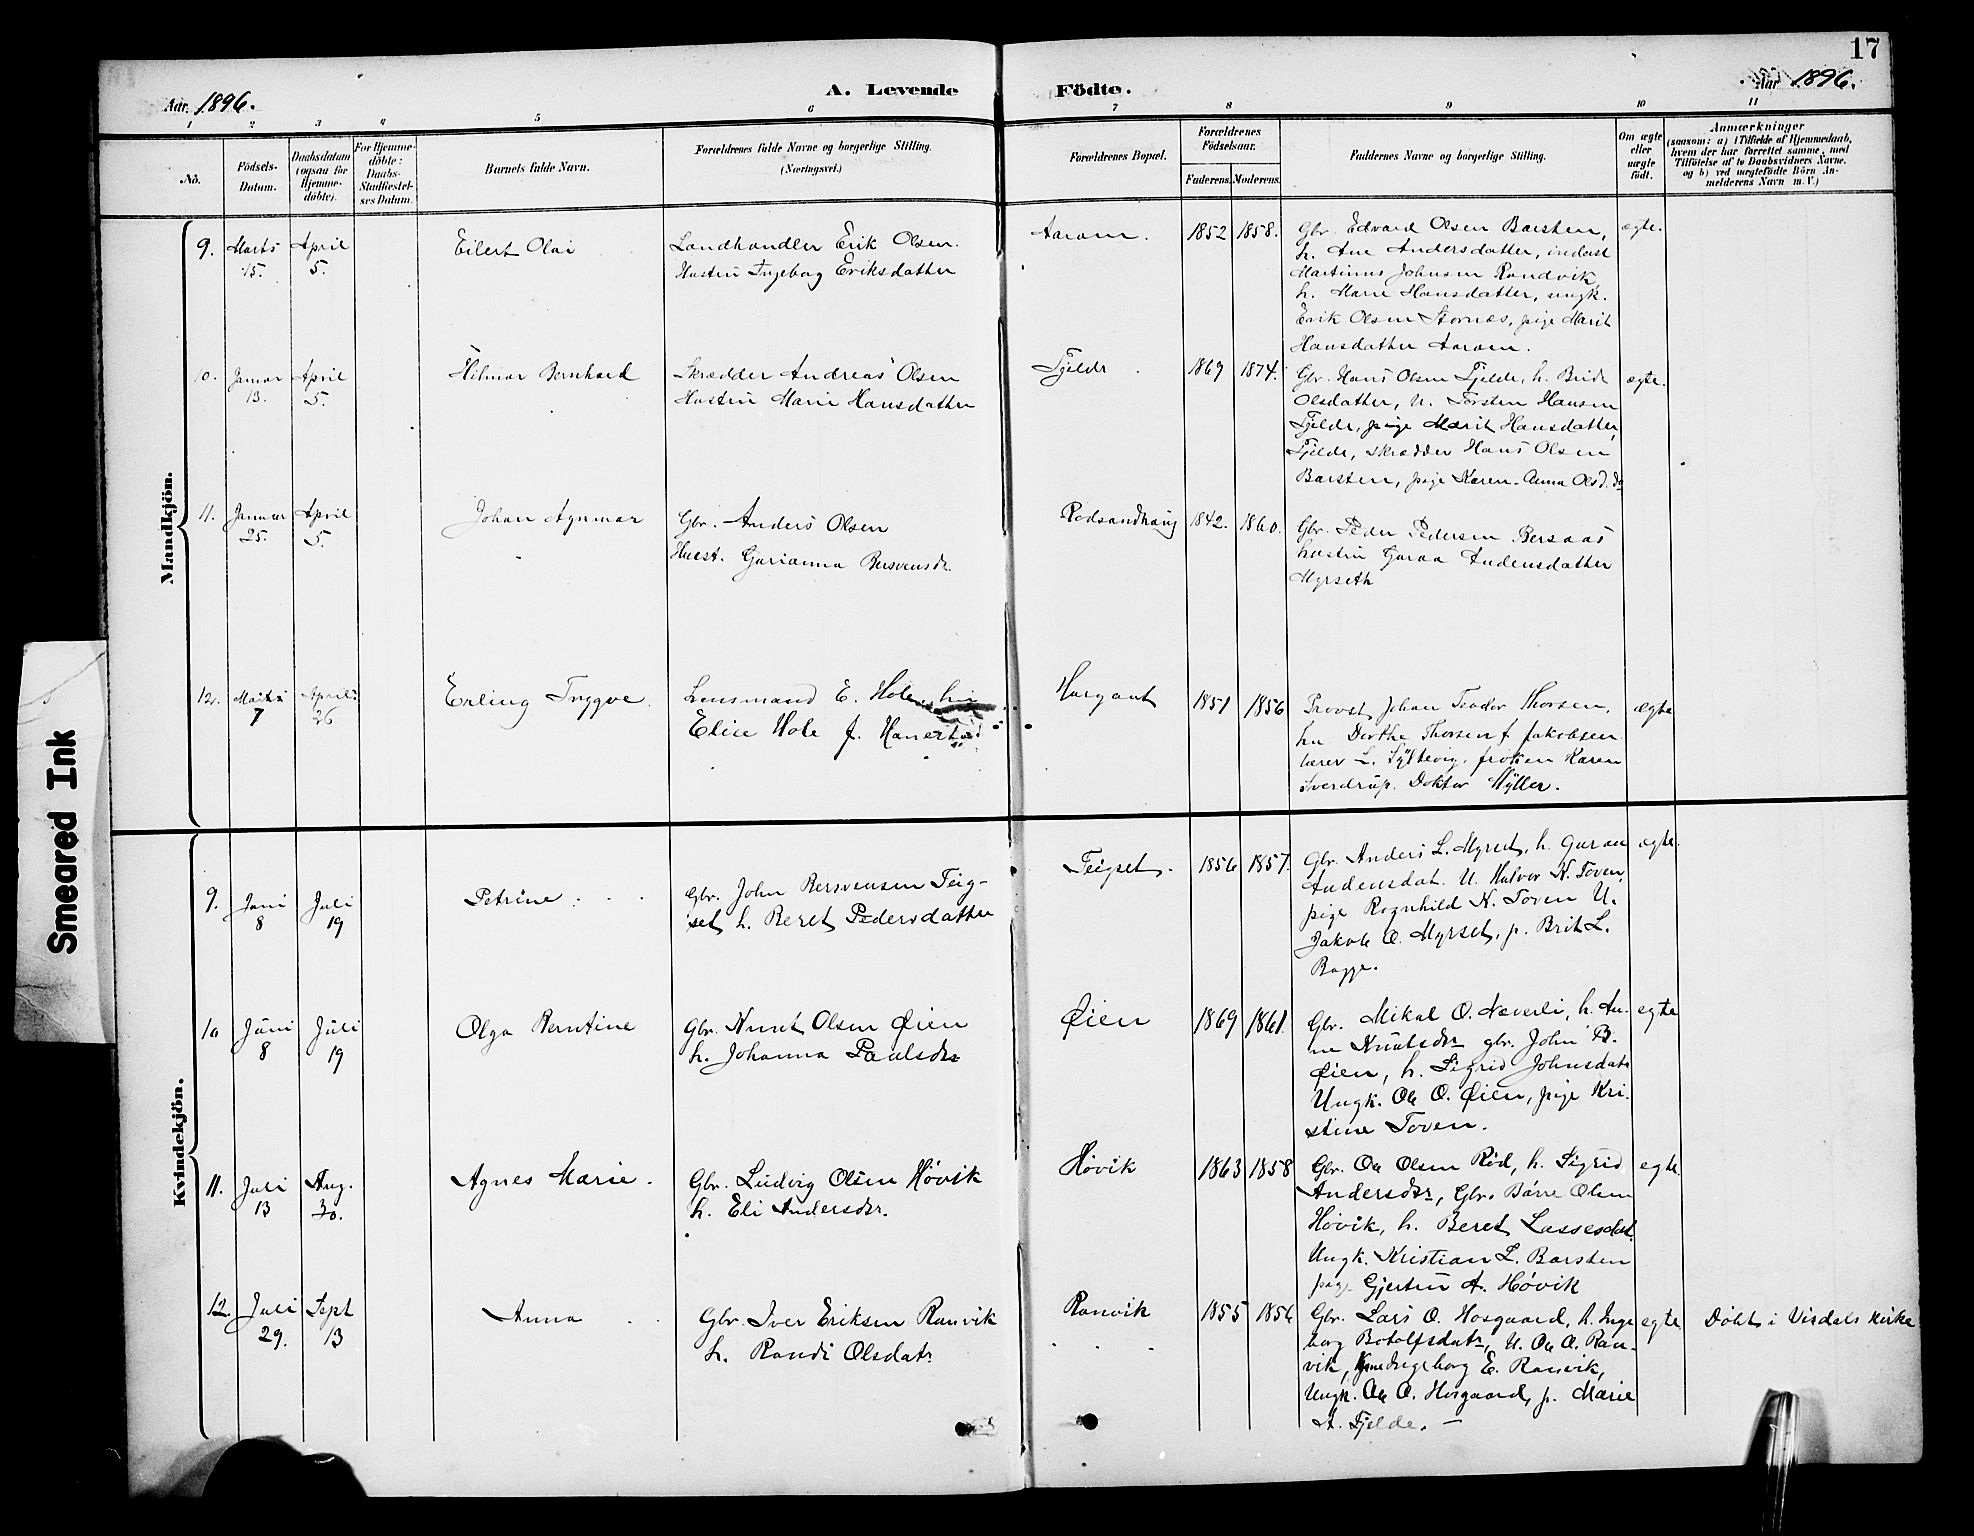 17
Aar 1896.
A. Levende
Födte.
Aar 1896.
1 2 3 4 5 6 7 8 9 10 11
No.
Födsels-
Datum.
Daabsdatum
(ogsaa for
Hjemme-
döbte).
For Hjemme-
döbte:
Daabs-
Stadfæstel-
ses Datum.
Barnets fulde Navn.
Forældrenes fulde Navne og borgerlige Stilling.
(Næringsvei.)
Forældrenes Bopæl.
Forældrenes
Födselsaar.
Faderens. Moderens.
Faddernes Navne og borgerlige Stilling.
Om ægte
eller
uægte
födt.
Anmærkninger
(saasom: a) i Tilfælde af Hjemmedaab,
hvem der har forrettet samme, med
Tilföielse af to Daabsvidners Navne,
og b) ved uægtefödte Börn An-
melderens Navn m. V.)
Mandkjön.
9.
Marts
15.
April
5.
Eilert Olai
Landhandler Erik Olsen.
Hustru Ingeborg Eriksdatter
Aaram.
1852
1858.
Gbr. Edvard Olsen Barsten,
h. Ane Andersdatter, inderst
Martinus Johnsen Randvik
h. Marie Hansdatter, ungk.
Erik Olsen Stornæs, pige Marit
Hansdatter Aaram.
ægte.
10.
Januar
13.
April
5.
Hilmar Bernhard
Skrædder Andreas Olsen
Hustru Marie Hansdatter
Fjelde
1869
1874.
Gbr. Hans Olsen Fjelde, h. Brit
Olsdatter, U. Torsten Hansen
Fjelde, pige Marit Hansdatter,
Fjelde, skrædder Hans Olsen
Barsten, pige Karen-Anna Olsd. do
ægte.
11.
Januar
25.
April
5.
Johan Agnmar
Gbr. Anders Olsen
Hust. Gurianna Bersvensdr.
Rødsandhaug
1842.
1860.
Gbr. Peder Pedersen Bersaas
hustru Guraa Andensdatter
Myrseth
12.
Marts
7
April
26
Erling Tryggve.
Lensmand E. Hole
Elise Hole f.
Hargaut
1851
1856
Provst Johan Teodor Thorsen,
hu Dorthe Thorsen f Jakobsen
lærer L. Syltevig. frøken Karen
Sverdrup. Doktor Mÿller.
ægte
Kvindekjön.
9.
Juni
8
Juli
19
Petrine
Gbr. John Bersvensen Teig-
set, h. Beret Pedersdatter
Teigset.
1856
1857.
Gbr. Anders L. Myrset, h. Guraa
Andensdat. U. Halvor K. Toven,
pige Ragnhild K. Toven U.
Jakob O. Myrset, p. Brit L.
Bagge.
ægte.
10
Juni
8
Juli
19
Olga Berntine
Gbr. Knut Olsen Øien
h. Johanna Paulsdr
Øien
1869
1861.
Gbr. Mikal O. Næverli, h. An-
ne Knutsdr gbr. John B.
Øien, h. Sigrid Johnsdatr
Ungk. Ole O. Øien, pige Kri-
stine Toven.
egte
11.
Juli
13
Aug.
30.
Agnes Marie.
Gbr. Ludvig Olsen Høvik
h. Eli Andersdr.
Høvik
1863
1858
Gbr. Ole Olsen Rød, h. Sigrid
Andersdr, Gbr. Børre Olsen
Høvik, h. Beret Lassesdat.
Ungk. Kristian L. Barsten
page Gjertru A. Høvik
egte
12.
Juli
29.
Sept
13
Anna
Gbr. Iver Eriksen Ranvik
h. Randi Olsdatr
Ranvik
1855
1856
Gbr. Lars O. Hosgaard, h. Inge
borg Botolfsdatr, U. Ole O. Ran-
vik, Ingeborg E. Ranvik,
Ungk. Ole O. Hosgaard, p. Marie
A. Fjelde. —
egte
Døbt i Visdals kirke
Smeared Ink